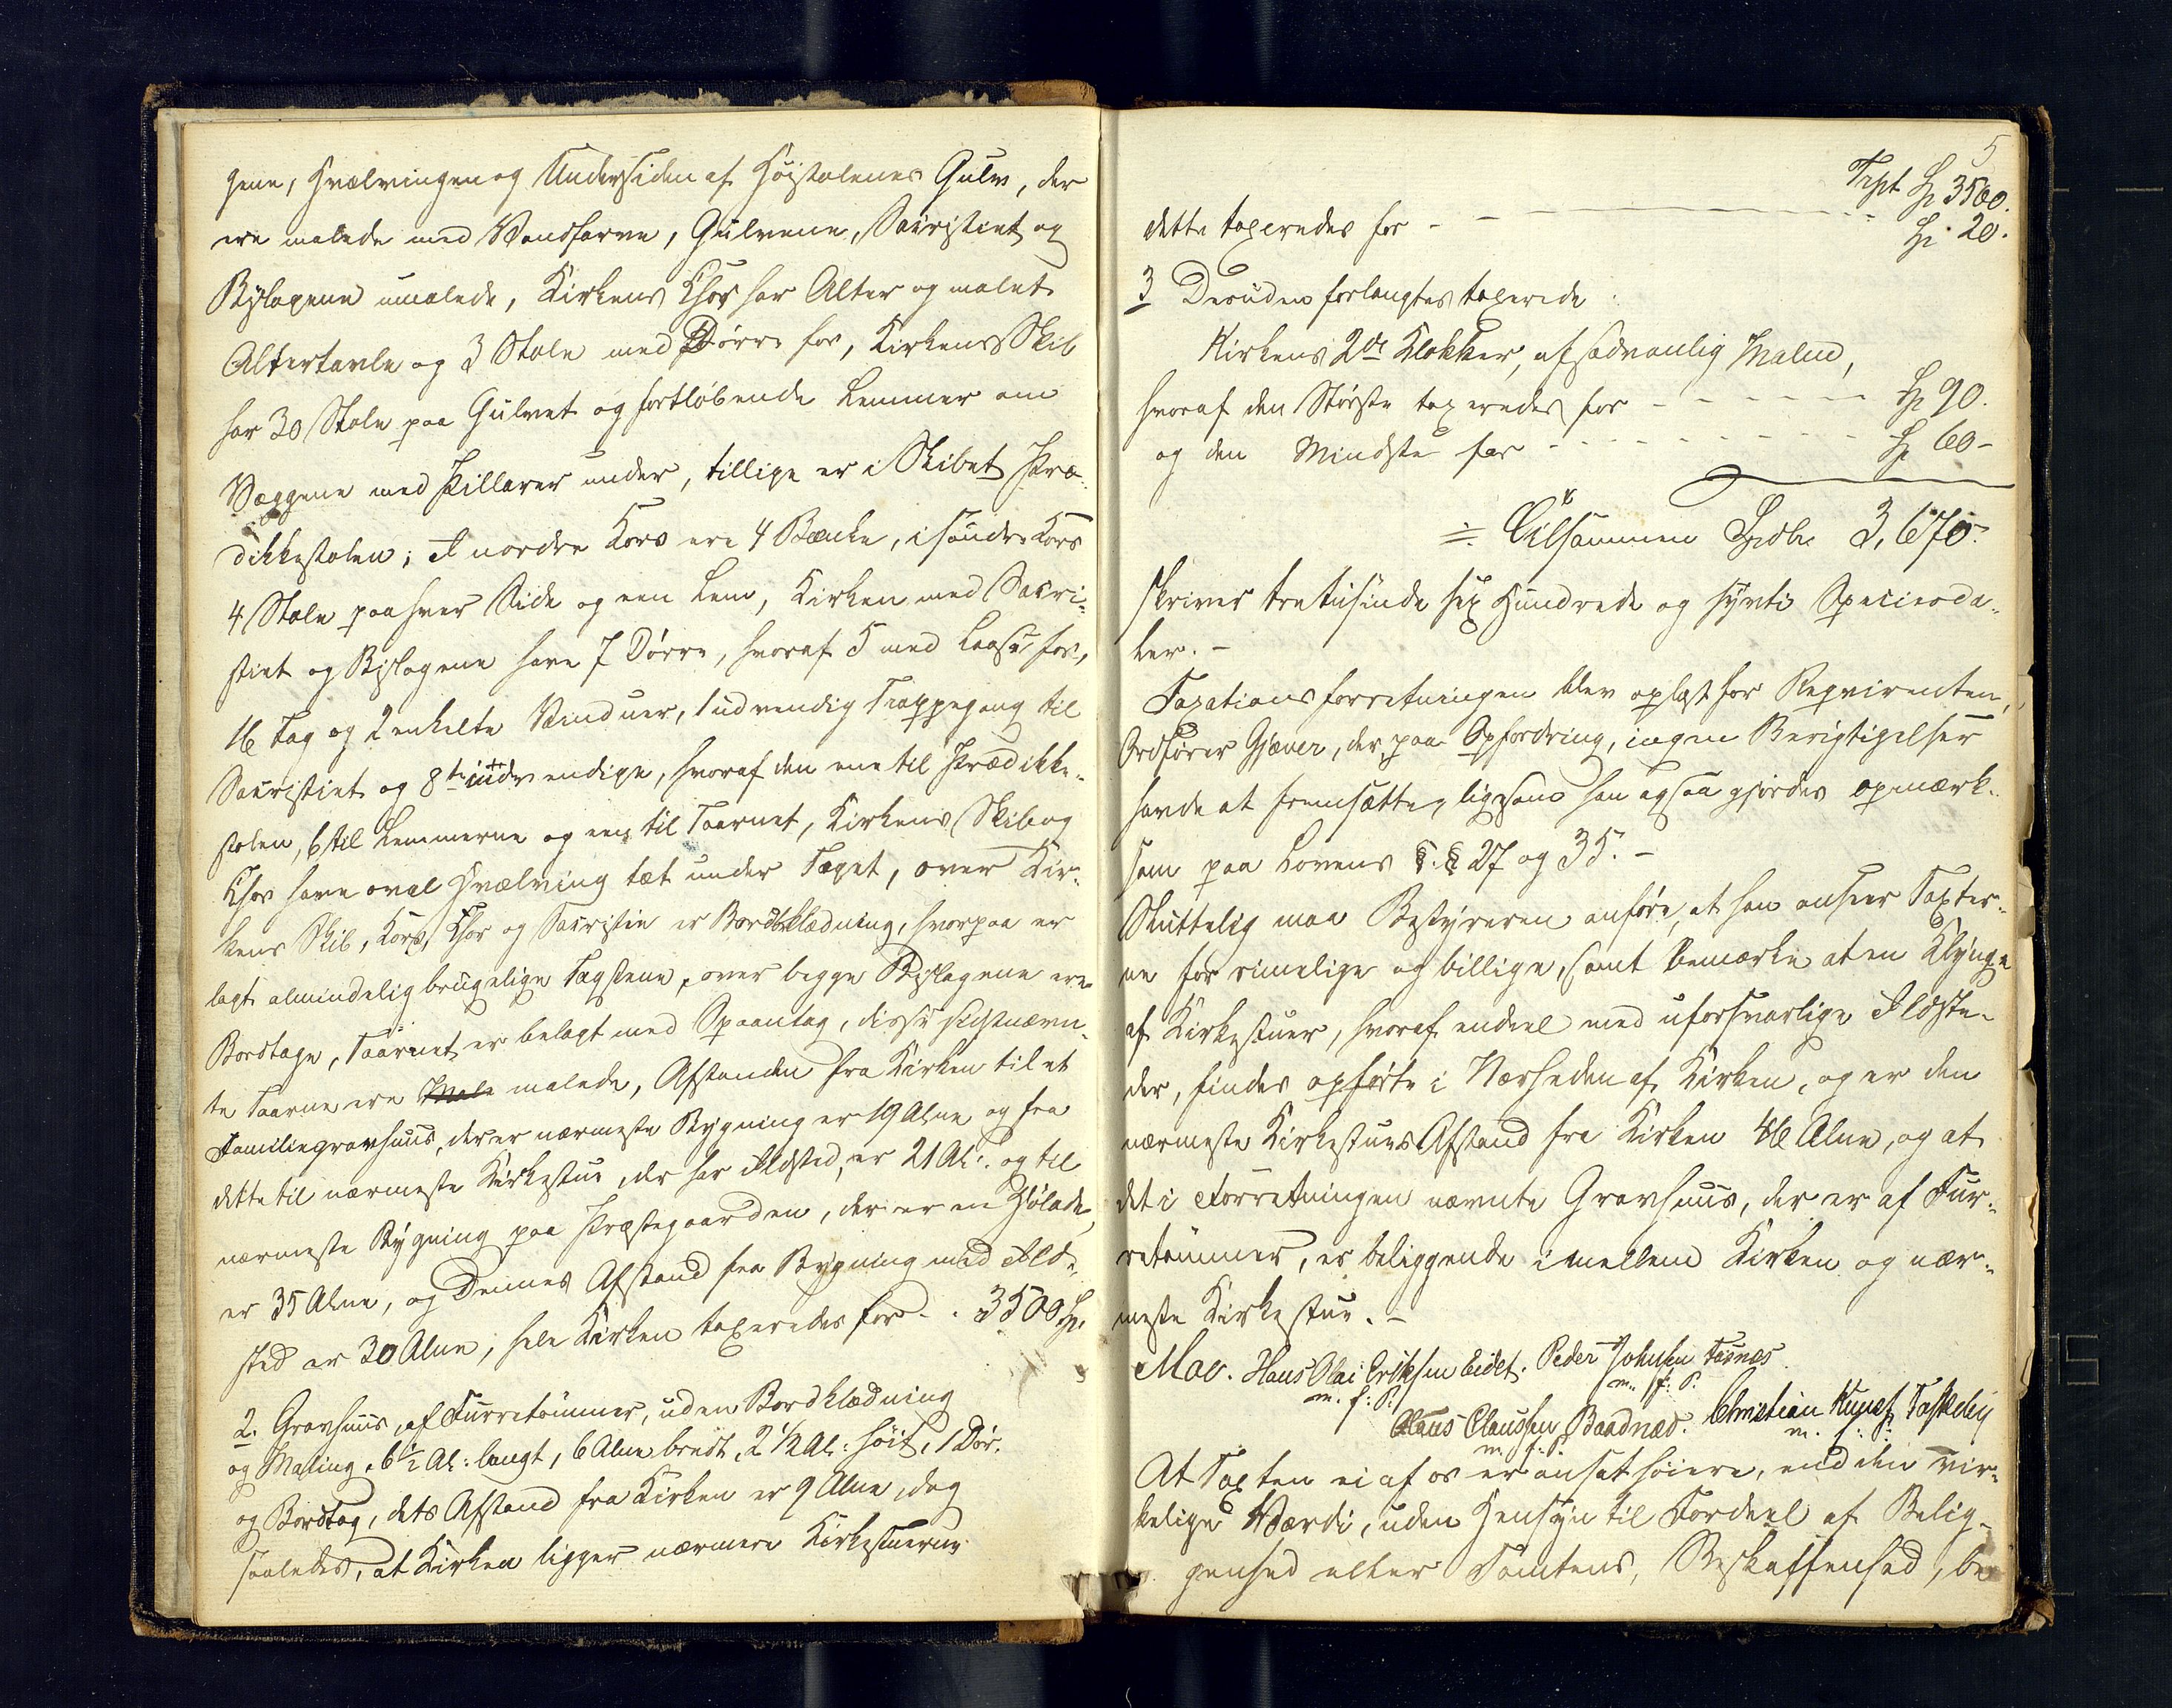 gene, Hvælvingen og Undersiden af Høistolenes Gulv, der
ere malede med Vandfarve, Gulvene, Sacristiet og
Bislagene umalede, Kirkens Chor har Alter og malet
Altertavle og 3 Stole med Dørre for, Kirkens Skib
har 30 Stole paa Gulvet og fortløbende Lemmer om
Væggene med Pillarer under, tillige er i Skibet Præ-
dikkestolen; I nordre Kors ere 4 Bænke, i søndre Kors
4 Stole paa hver Side og een Lem, Kirken med Sacri-
stiet og Bislagene have 7 Dørre, hvoraf 5 med Laase for,
16 Fag og 2 enkelte Vinduer, 1 udvendig Trappegang til
Sacristiet og 8te indvendige, hvoraf den ene til Prædikke-
stolen, 6 til Lemmerne og een til Taarnet, Kirkens Skib og
Chor have oval Hvælving tæt under Taget, over Kir-
kens Skib, Kors, Chor og Sacristie er Bordklædning, hvorpaa er
lagt almindelig brugelige Tagstene, over begge Bislagene ere
Bordtage, Taarnet er belagt med Spaantag, disse sidstnævn-
te Taarne ere Male malede, Afstanden fra Kirken til et
Familiegravhuus, der er nærmeste Bygning er 19 Alne og fra
dette til nærmeste Kirkestue, der har Ildsted, er 21 Al: og til
nærmeste Bygning paa Præstegaarden, der er en Hølade,
er 35 Alne, og Dennes Afstand fra Bygning med Ild-
sted er 30 Alne, hele Kirken taxeredes for - . 3500 Sp.
2. Gravhuus, af Furretømmer, uden Bordklædning
og Maling, 6½ Al: langt, 6 Alne bredt, 2½ Al: høit, 1 Dør,
og Bordtag, dets Afstand fra Kirken er 9 Alne, dog
saaledes, at Kirken ligger nærmere Kirkestuerne
5
Trpt Sp 3500.
dette taxeredes for - - - Sp. 20.
3 Desuden forlangtes taxerede
Kirkens 2de Klokker, af sædvanlig Malm,
hvoraf den Største taxeredes for - - - - - - Sp 90.
og den Mindste for - - - - - - - - - Sp 60 -
Tilsammen Spdlr 3,670.
skriver tretusinde sex Hundrede og syvti Speciesda-
ler. -
Taxationsforretningen blev oplæst for Reqvirenten,
Ordfører Gjæver, der, paa Opfordring, ingen Berigtigelser
havde at fremsætte, ligesom han ogsaa gjordes opmærk-
som paa Lovens §.§ 27 og 35. -
Sluttelig maa Bestyreren anføre, at han anseer Taxter-
ne for rimelige og billige, samt bemærke at en Klynge
af Kirkestuer, hvoraf endeel med uforsvarlige Ildste-
der, findes opførte i Nærheden af Kirken, og er den
nærmeste Kirkestues Afstand fra Kirken 46 Alne, og at
det i Forretningen nævnte Gravhuus, der er af Fur-
retømmer, er beliggende imellem Kirken og nær-
meste Kirkestue. -
Mac. Hans Olai Eriksen Eidet. Peder Johnsen Tosnæs
m. f. P. m. f. P.
Claus Claussen Baadnæs. Christian Kunst Taskeby
m. f. P. m. f. P.
At Taxten ei af os er ansat høiere, end den vir-
kelige Værdi, uden Hensyn til Fordeel af Belig-
genhed eller Tomtens Beskaffenhed, be